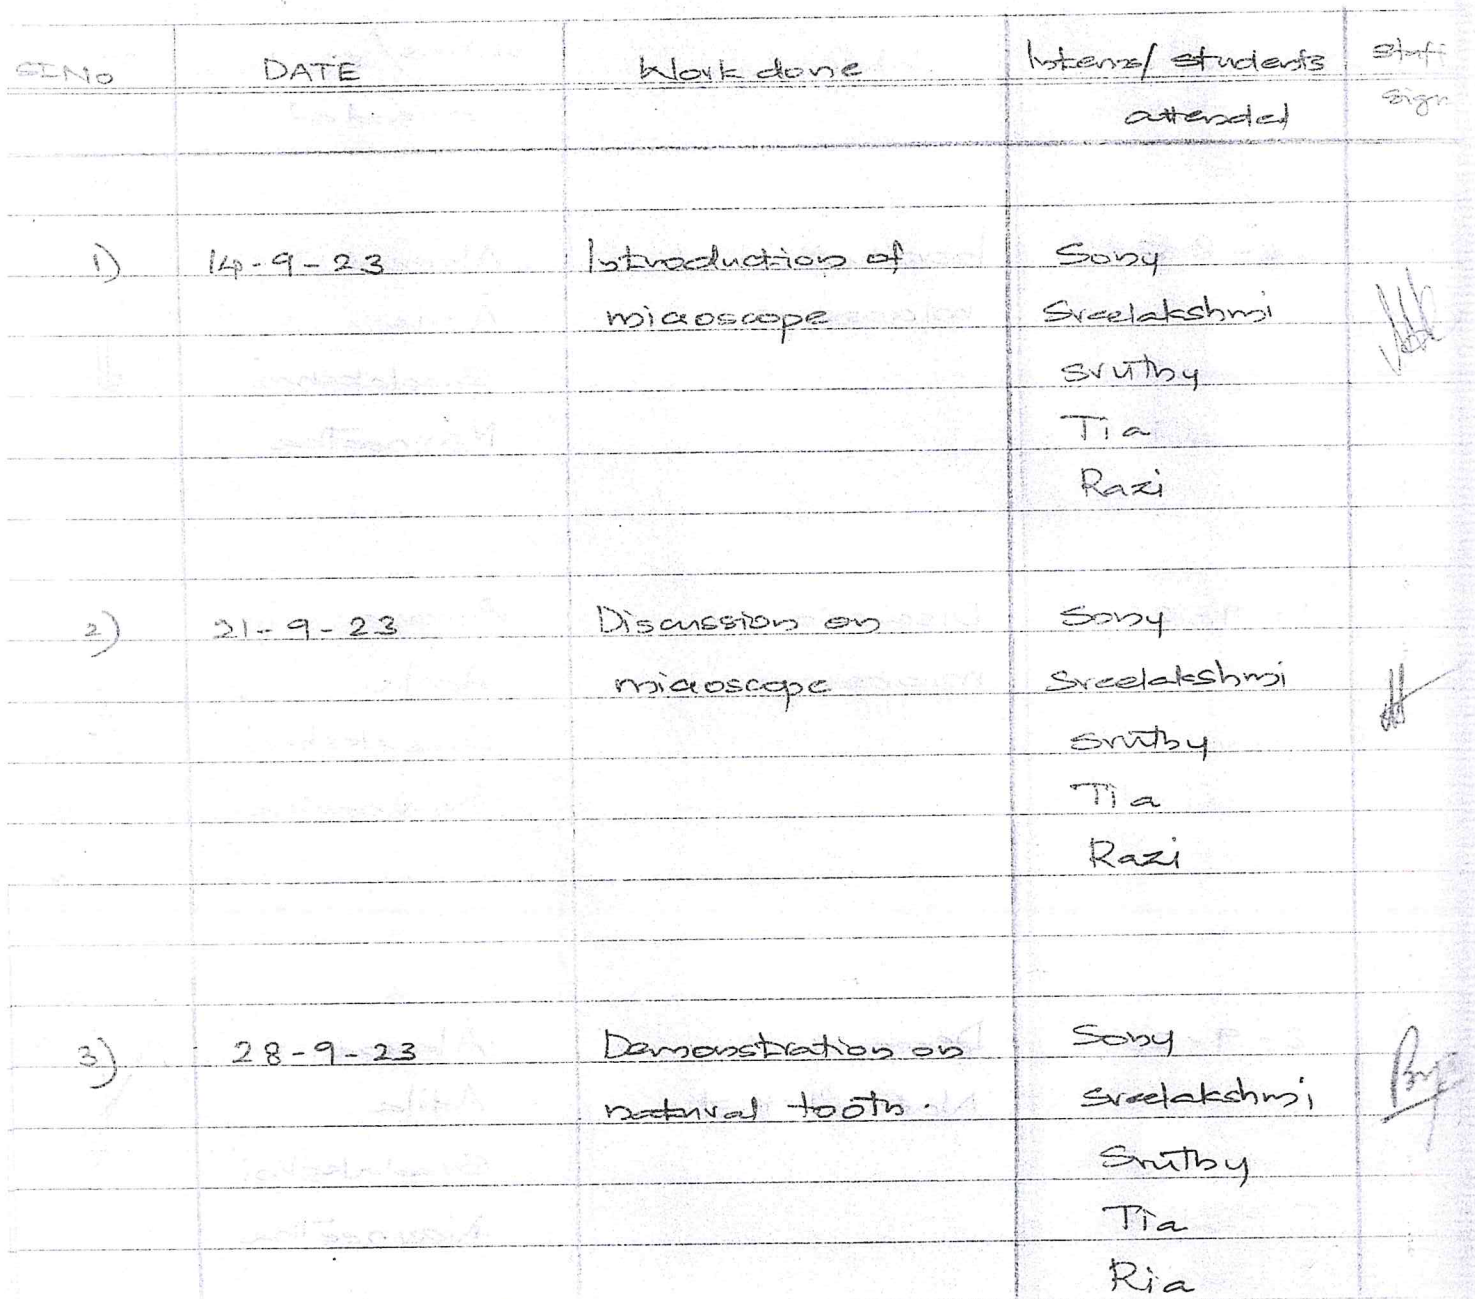 SI No DATE Work done Interns/ students Staff
attended Sign
1) 14-9-23 Introduction of Sony
microscope Sreelakshmi
Sruthy
Tia
Razi
2) 21-9-23 Discussion on Sony
microscope Sreelakshmi
Sruthy
Tia
Razi
3) 28-9-23 Demonstration on Sony
natural tooth. Sreelakshmi
Sruthy
Tia
Ria